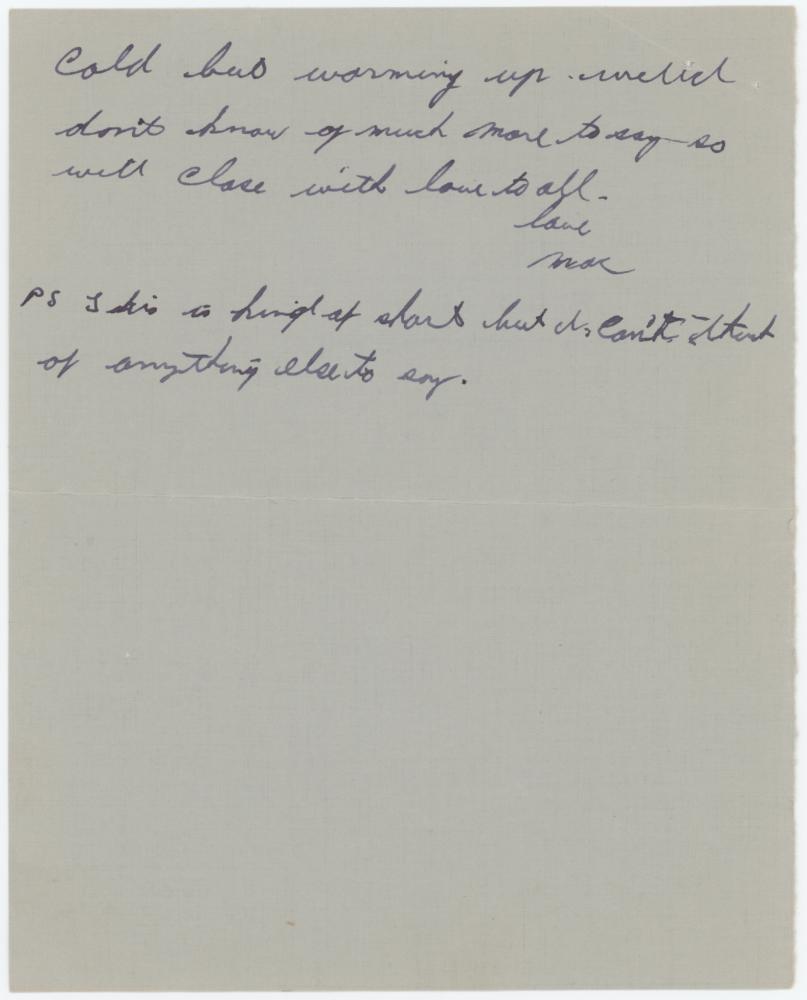 Cold but warming up. well I
don't know of much more to say so
will close with love to all.
love
Mac
PS This is kind of short but I can't think
of anything else to say.